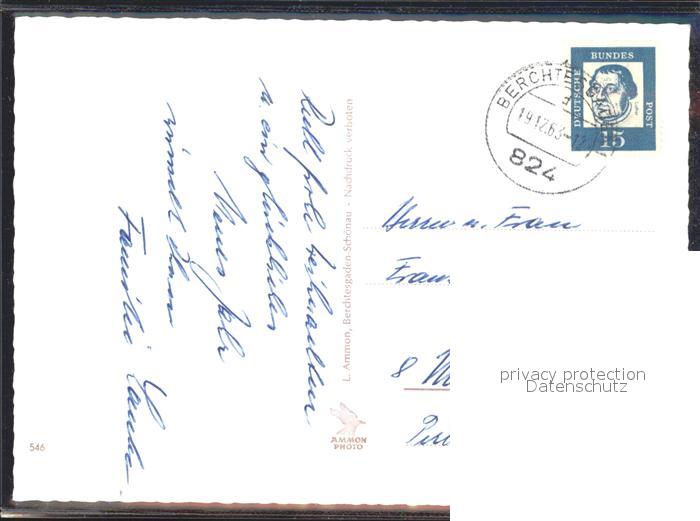 Recht frohe Weihnachten
u. ein glückliches
Neues Jahr
wünscht Ihnen
Familie
L. Ammon, Berchtesgaden-Schönau - Nachdruck verboten
AMMON
PHOTO
546
BERCHTESGADEN
19.12.63-12
824
DEUTSCHE
BUNDES
POST
15
Herrn u. Frau
8 M
privacy protection
Datenschutz